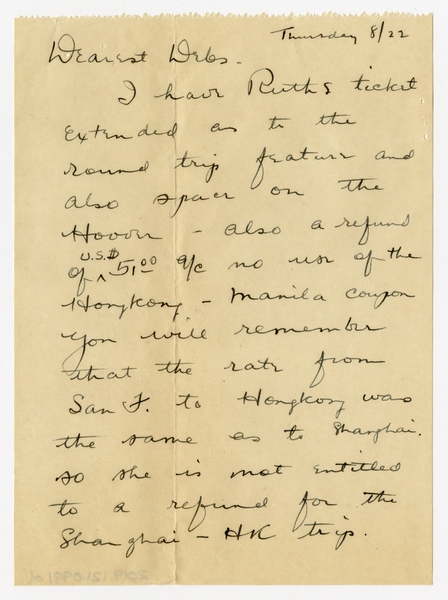 Thursday 8/22
Dearest Debs.
I have Ruth's ticket
extended as to the
round trip feature and
also space on the
Hoover - also a refund
of U.S.$ 51.00 a/c no use of the
Hongkong - Manila coupon
You will remember
that the rate from
San F. to Hongkong was
the same as to Shanghai.
so she is not entitled
to a refund for the
Shanghai - HK trip.